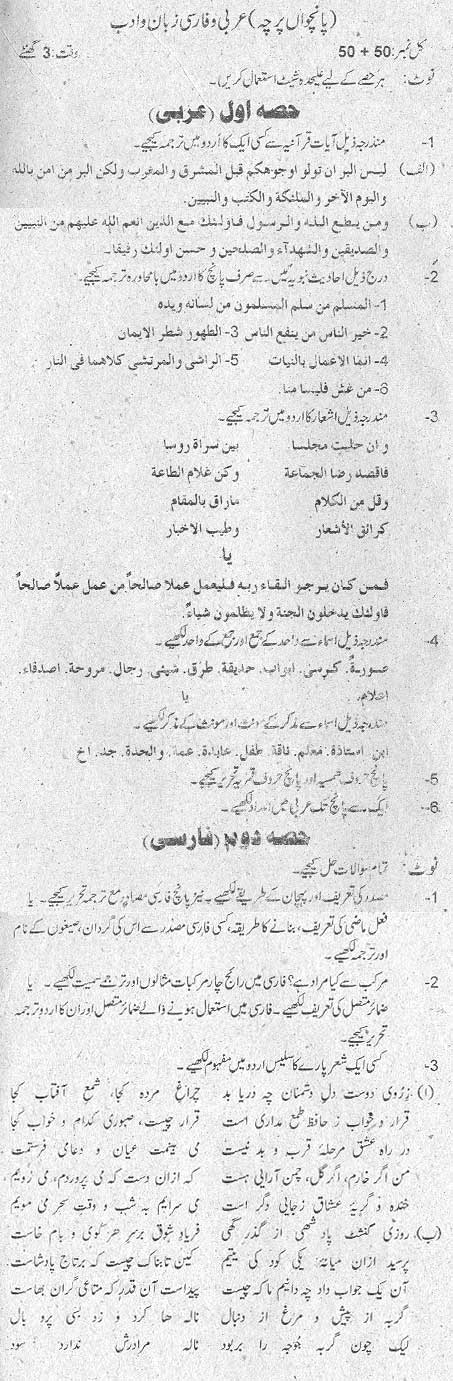 (پانچواں پرچہ) عربی و فارسی زبان و ادب
کل نمبر: 50 + 50 وقت: 3 گھنٹے
نوٹ: ہر حصے کے لیے علیحدہ شیٹ استعمال کریں۔
حصہ اول (عربی)
1- مندرجہ ذیل آیات قرآنیہ سے کسی ایک کا اردو میں ترجمہ کیجیے۔
(الف) ليس البر ان تولوا وجوهكم قبل المشرق والمغرب ولكن البر من امن بالله
واليوم الآخر والملئكة والكتب والنبيين۔
(ب) ومن يطع الله والرسول فاولئك مع الذين انعم الله عليهم من النبيين
والصديقين والشهدآء والصلحين و حسن اولئك رفيقا۔
2- درج ذیل احادیث نبویہ میں سے صرف پانچ کا اردو میں بامحاورہ ترجمہ کیجیے۔
1- المسلم من سلم المسلمون من لسانه ويده
2- خير الناس من ينفع الناس 3- الطهور شطر الايمان
4- انما الاعمال بالنيات 5- الراشي والمرتشي كلاهما في النار
6- من غش فليسا منا۔
3- مندرجہ ذیل اشعار کا اردو میں ترجمہ کیجیے۔
و ان حللت مجلسا بين سراة روسا
فاقصد رضا الجماعة وكن غلام الطاعة
وقل من الكلام ماراق بالمقام
كرائق الأشعار وطيب الاخبار
یا
فمن كان يرجو القاء ربه فليعمل عملا صالحاً من عمل عملاً صالحاً
فاولئك يدخلون الجنة ولا يظلمون شياءً۔
4- مندرجہ ذیل اسماء سے واحد کے جمع اور جمع کے واحد لکھیے۔
صورة۔ كرسى۔ ابواب۔ حديقة۔ طرق۔ شيئى۔ رجال۔ مروحة۔ اصدقاء۔
اعلام۔ یا
مندرجہ ذیل اسماء سے مذکر کے مونث اور مونث کے مذکر لکھیے۔
ابن۔ استاذة۔ معلم۔ ناقة۔ طفل۔ عابدة۔ عمة۔ والحدة۔ جد۔ اخ
5- پانچ حروف شمسیہ اور پانچ حروف قمریہ تحریر کیجیے۔
6- ایک سے پانچ تک عربی میں اعداد لکھیے۔
حصہ دوم (فارسی)
نوٹ تمام سوالات حل کیجیے۔
1- مصدر کی تعریف اور پہچان کے طریقے لکھیے۔ نیز پانچ فارسی مصادر مع ترجمہ تحریر کیجیے۔ یا
فعل ماضی کی تعریف، بنانے کا طریقہ، کسی فارسی مصدر سے اس کی گردان، صیغوں کے نام
اور ترجمہ لکھیے۔
2- مرکب سے کیا مراد ہے؟ فارسی میں رائج چار مرکبات مثالوں اور ترجمے سمیت لکھیے۔ یا
ضمائر متصل کی تعریف لکھیے۔ فارسی میں استعمال ہونے والے ضمائر متصل اور ان کا اردو ترجمہ
تحریر کیجیے۔
3- کسی ایک شعر پارے کا سلیس اردو میں مفہوم لکھیے۔
(ا) ز روی دوست دل دشمنان چہ دریا بد چراغ مردہ کجا، شمع آفتاب کجا
قرار و خواب ز حافظ طمع مداری است قرار چیست، صبوری کدام و خواب کجا
در راہ عشق مرحلۂ قرب و بد نیست می بینمت عیان و دعامی فرستمت
من اگر خارم، اگر گل، چمن آرایی ہست کہ ازان دست کہ می پروردم، می رویم
خندہ و گریۂ عشاق زجایی دگر است می سرایم بہ شب و وقت سحر می مویم
(ب) روزی گذشت پادشھی از گذر گھی فریاد شوق برسر ھر کوی و بام خاست
پرسید ازان میانہ یکی کود کی یتیم کین تابناک چیست کہ برتاج پادشاست
آن یک جواب داد چہ دانیم ما کہ چیست پیداست آن قدر کہ متاعی گران بھاست
گربہ از پیش و مرغ از دنبال نالہ ھا کرد و زد بسی پرو بال
لیک چون گربہ جوجہ را بربود نالہ مرادرش ندارد سود